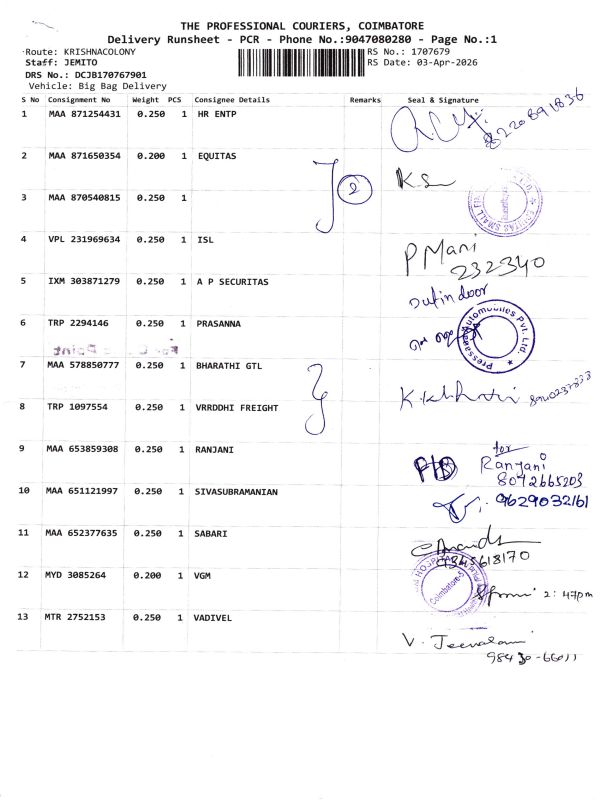 THE PROFESSIONAL COURIERS, COIMBATORE
Delivery Runsheet - PCR - Phone No.:9047080280 - Page No.:1
Route: KRISHNACOLONY
Staff: JEMITO
DRS No.: DCJB170767901
Vehicle: Big Bag Delivery
RS No.: 1707679
RS Date: 03-Apr-2026
S No Consignment No Weight PCS Consignee Details Remarks Seal & Signature
1 MAA 871254431 0.250 1 HR ENTP 8220891836
2 MAA 871650354 0.200 1 EQUITAS
2
3 MAA 870540815 0.250 1
4 VPL 231969634 0.250 1 ISL P Mani
232340
5 IXM 303871279 0.250 1 A P SECURITAS
6 TRP 2294146 0.250 1 PRASANNA Automobiles Pvt. Ltd.
7 MAA 578850777 0.250 1 BHARATHI GTL
8 TRP 1097554 0.250 1 VRRDDHI FREIGHT
9 MAA 653859308 0.250 1 RANJANI for
Ranjani
8072665203
10 MAA 651121997 0.250 1 SIVASUBRAMANIAN 9629032161
11 MAA 652377635 0.250 1 SABARI
12 MYD 3085264 0.200 1 VGM Coimbatore-5 2:47pm
13 MTR 2752153 0.250 1 VADIVEL
98430-66011